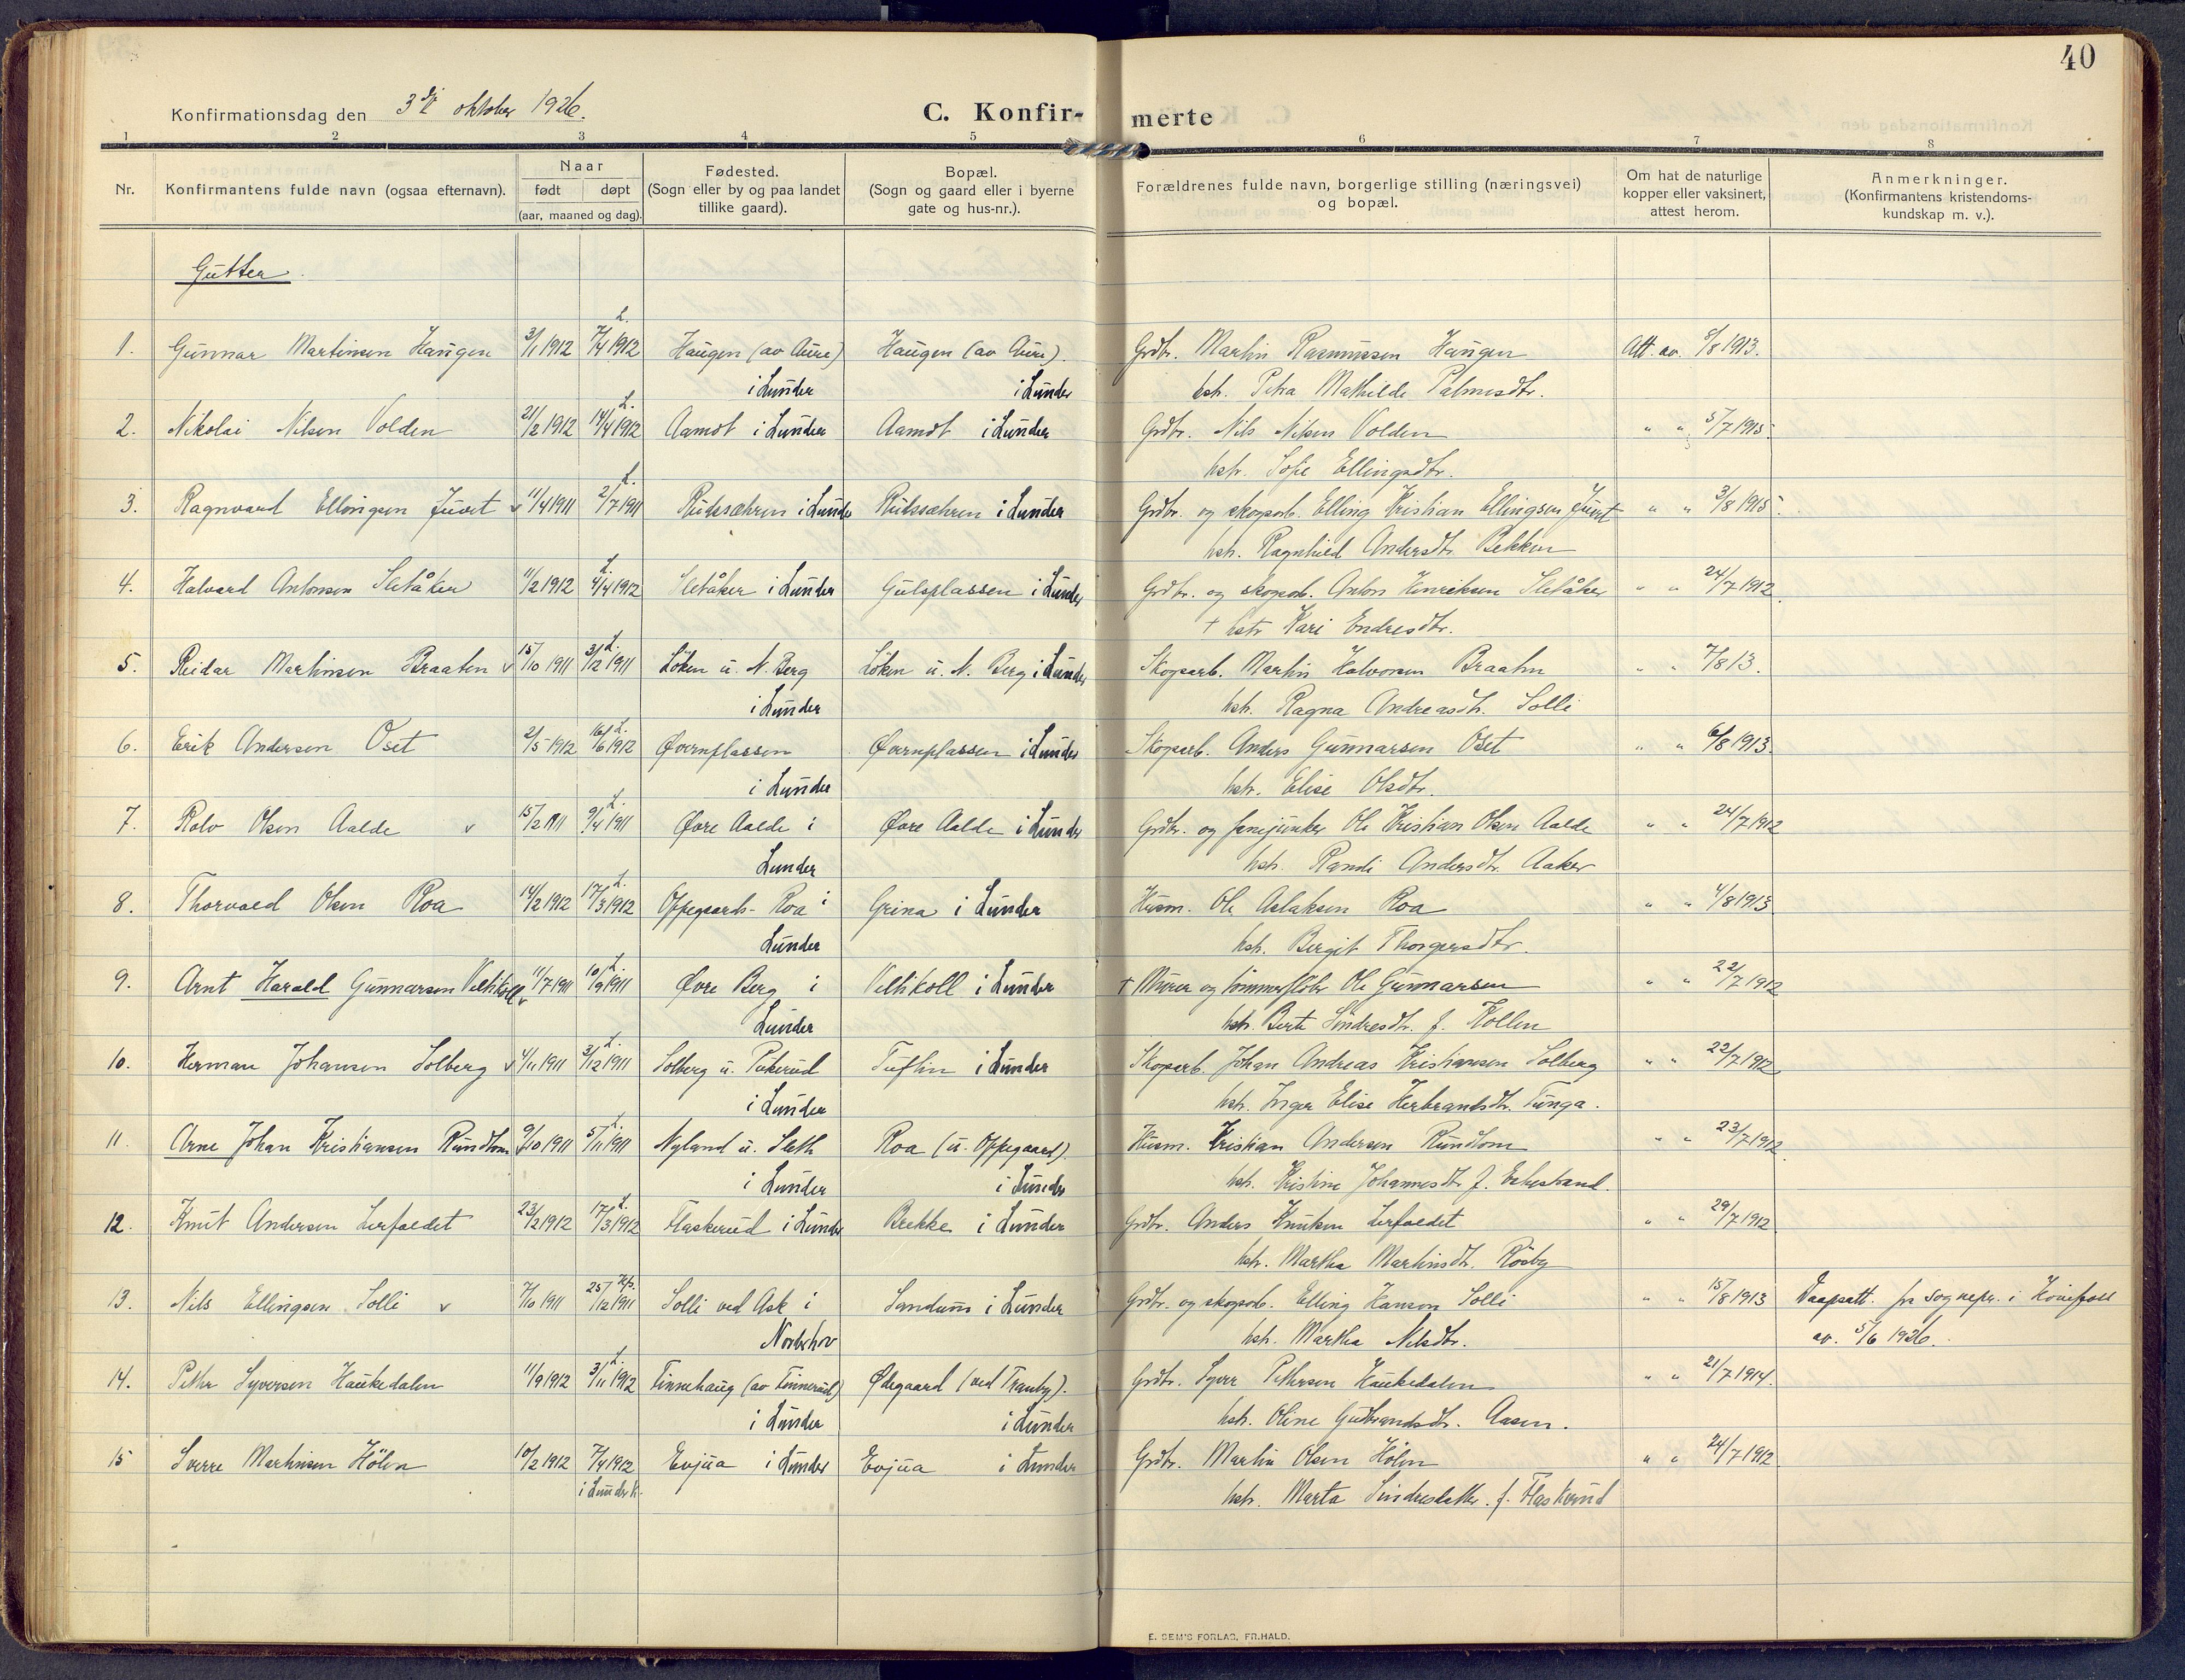 40
Konfirmationsdag den 3die oktober 1926.
C. Konfir- merte
1 2 3 4 5 6 7 8
Nr.
Konfirmantens fulde navn (ogsaa efternavn).
Naar
født døpt
(aar, maaned og dag).
Fødested.
(Sogn eller by og paa landet
tillike gaard).
Bopæl.
(Sogn og gaard eller i byerne
gate og hus-nr.).
Forældrenes fulde navn, borgerlige stilling (næringsvei)
og bopæl.
Om hat de naturlige
kopper eller vaksinert,
attest herom.
Anmerkninger.
(Konfirmantens kristendoms-
kundskap m. v.).
Gutter
1. Gunnar Martinsen Haugen 3/1 1912 L. 7/4 1912 Haugen (av Aure) Haugen (av Aure). Grdbr. Martin Rasmussen Haugen Att. av. 5/8 1913.
i Lunder i Lunder hstr. Petra Mathilde Palmesdtr.
2. Nikolai Nilsen Volden 21/2 1912 L. 14/4 1912 Aamot i Lunder Aamot i Lunder Grdbr. Nils Nilsen Volden " " 5/7 1915.
hstr. Sofie Ellingsdtr.
3. Ragnvard Ellingsen Juvet v 11/4 1911 L. 2/7 1911 Rudssætren i Lunder Rudssætren i Lunder Grdbr. og skogsarb. Elling Kristian Ellingsen Juvet " " 3/8 1915.
hstr. Ragnhild Andersdtr. Bekken
4. Halvard Antonsen Sletåker 11/2 1912 L. 4/4 1912 Sletåker i Lunder Gulsplassen i Lunder Grdbr. og skogsarb. Anton Henriksen Sletåker " " 24/7 1912.
† hstr Kari Endresdtr.
5. Reidar Martinsen Braaten v 15/10 1911 L. 31/12 1911 Löken u. N. Berg Löken u. N. Berg i Lunder Skogsarb. Martin Halvorsen Braaten " " 7/8 13.
i Lunder hstr. Ragna Andreasdtr. Solli
6. Erik Andersen Oset 2/5 1912 L. 16/6 1912 Øvernplassen Øvernplassen i Lunder Skogsarb. Anders Gunnarsen Oset " " 6/8 1913.
i Lunder hstr. Elise Olsdtr.
7. Rolv Olsen Aalde v 15/2 1911 L. 9/4 1911 Øvre Aalde i Øvre Aalde i Lunder Grdbr. og fanejunker Ole Kristian Olsen Aalde " " 24/7 1912
Lunder hstr. Randi Andersdtr. Aaker
8. Thorvald Olsen Roa 14/2 1912 L. 17/3 1912 Oppegaards-Roa i Grina i Lunder Husm. Ole Aslaksen Roa " " 4/8 1913
Lunder hstr. Bergit Thorgersdtr.
9. Arnt Harald Gunnarsen Veltikoll v 11/7 1911 L. 10/9 1911 Øvre Berg i Veltikoll i Lunder † Murer og tömmerfløter Ole Gunnarsen " " 22/7 1912
Lunder hstr. Berte Sindresdtr. f. Kollen
10. Herman Johansen Solberg v 4/11 1911 L. 3/12 1911 Solberg u. Pukerud Tuftin i Lunder Skogsarb. Johan Andreas Kristiansen Solberg " " 22/7 1912.
i Lunder hstr. Inger Elise Herbrandsdtr. Tunga.
11. Arne Johan Kristiansen Rundtom v 9/10 1911 L. 5/11 1911 Nyland u. Sleth Roa (u. Oppegaard). Husm. Kristian Andersen Rundtom " " 23/7 1912.
i Lunder i Lunder hstr. Kristine Johannesdtr f. Eikestrand.
12. Knut Andersen Lerfaldet 23/2 1912 L. 17/3 1912 Flaskerud i Lunder Brekke i Lunder Grdbr. Anders Knutsen Lerfaldet " " 29/7 1912
hstr. Martha Martinsdtr. Rösby
13. Nils Ellingsen Solli v 7/10 1911 25/12 1911 Solli ved Ask i Sandum i Lunder Grdbr. og skogsarb. Elling Hansen Solli " " 15/8 1913 Daapsatt. fra sognepr. i Hönefoss
Norderhov hstr. Martha Nilsdtr. av. 5/6 1926.
14. Petter Syversen Haukedalen 11/9 1912 L. 3/11 1912 Finnehaug (av Finnerud) Ødegaard (ved Tranby). Grdbr. Syver Pettersen Haukedalen " " 21/7 1914.
i Lunder i Lunder hstr. Oline Gudbrandsdtr. Aasen.
15 Sverre Martinsen Hölen 10/2 1912 7/4 1912 Evjua i Lunder Evjua i Lunder Grdbr. Martin Olsen Hölen " " 24/7 1912
i Lunder k. hstr. Marta Sindresdatter f. Flaskerud
E. SEM'S FORLAG, FR.HALD.